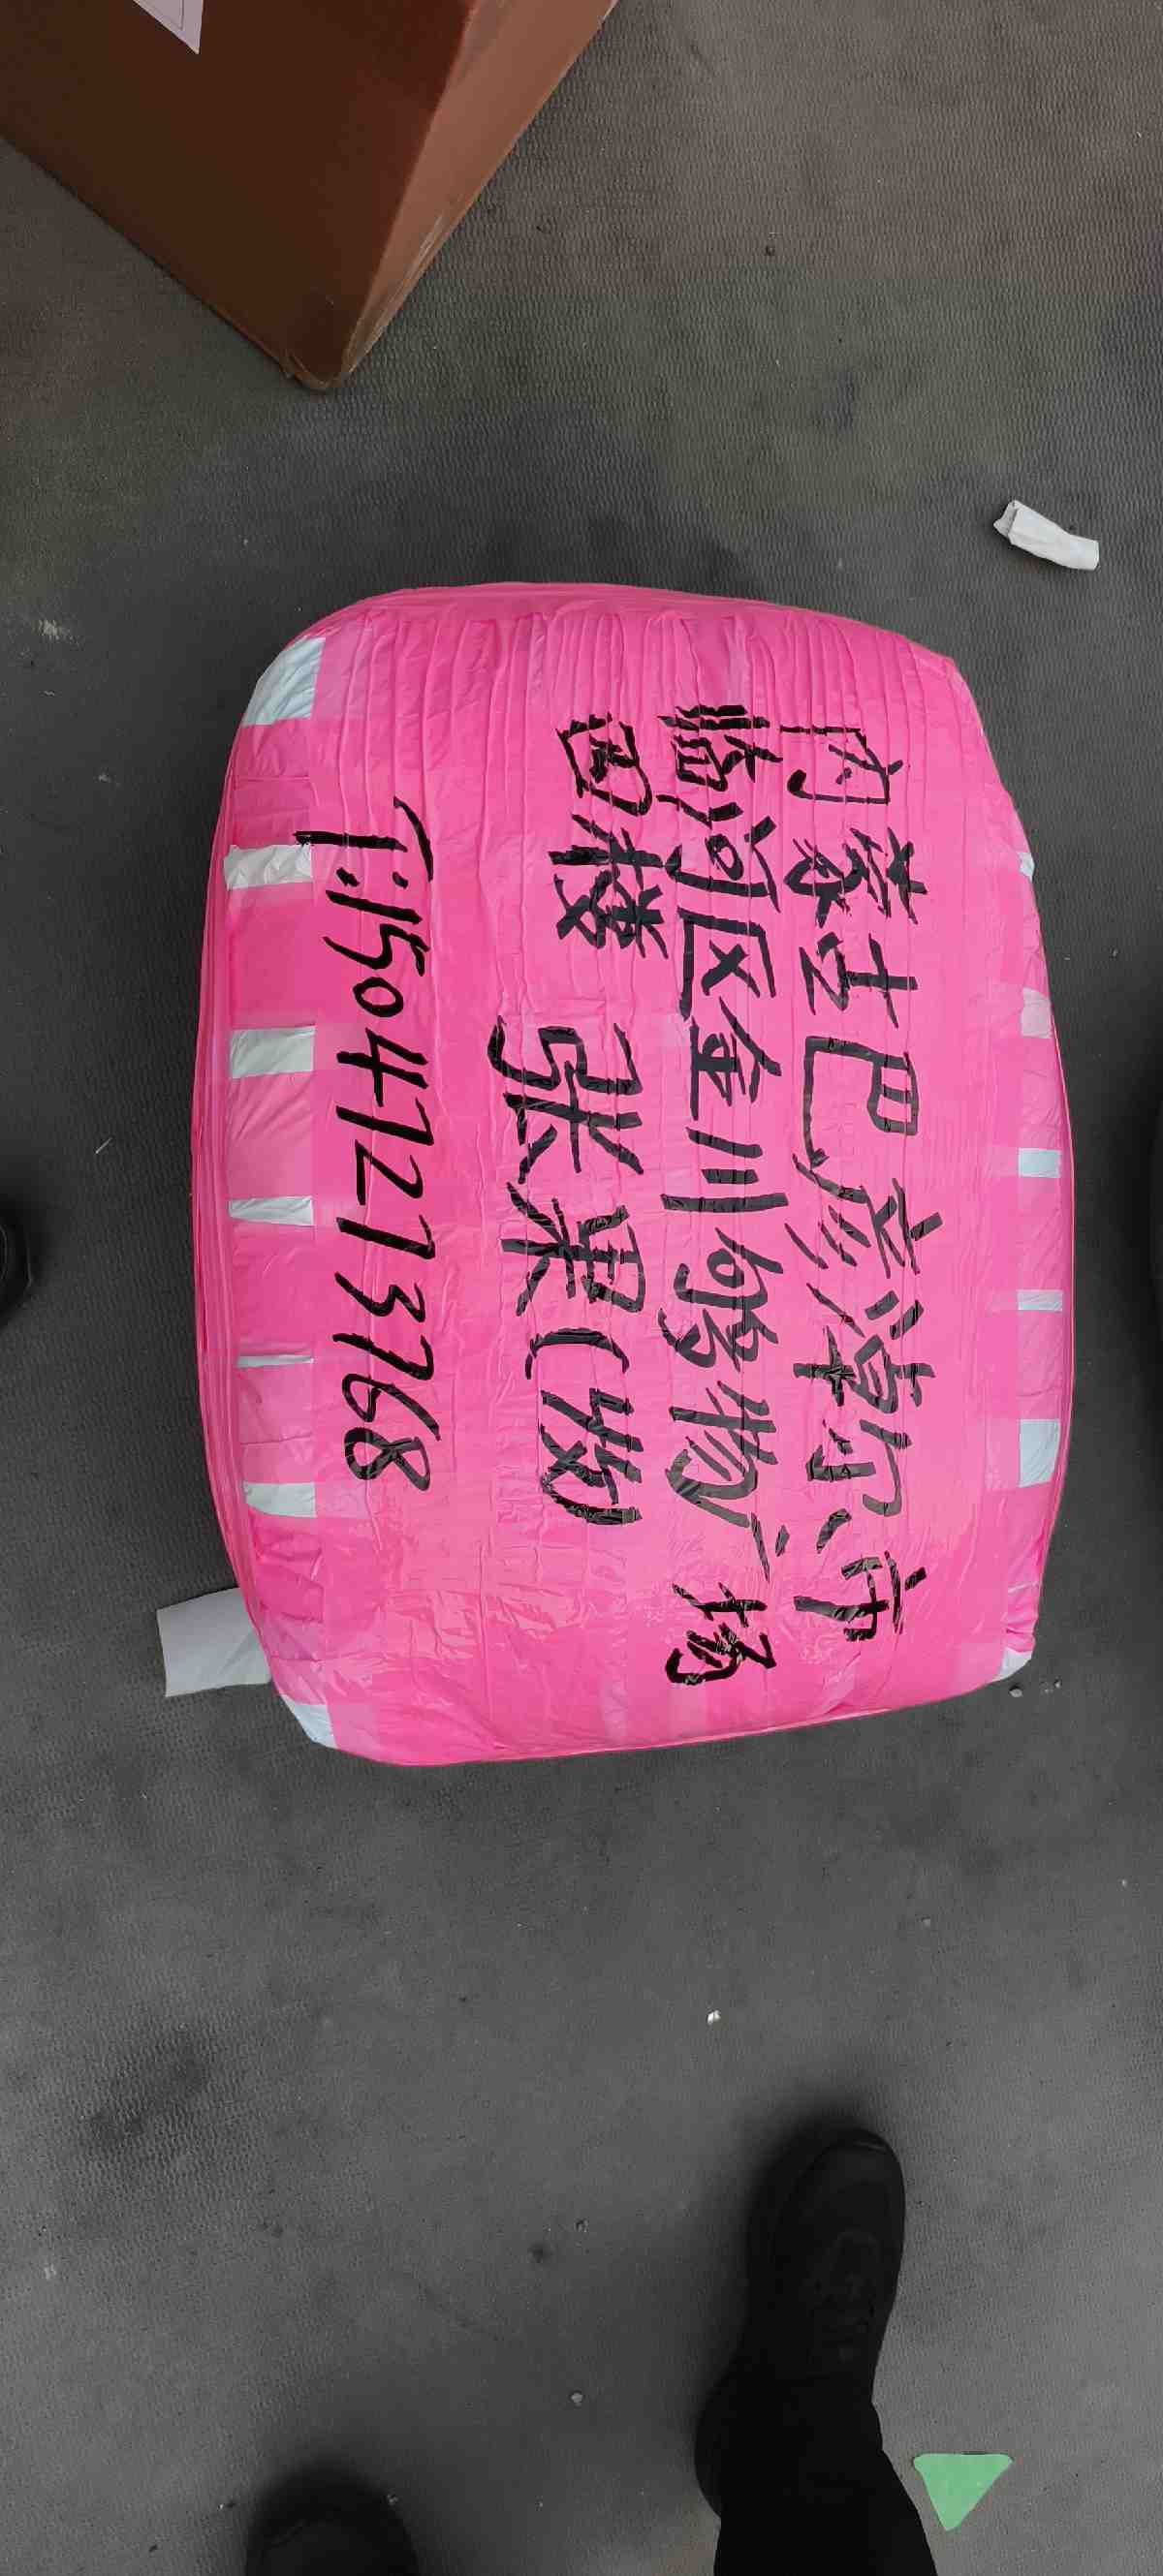 内蒙古巴彦淖尔市
临河区金川购物广场
四楼
张果(收)
T:15047273768